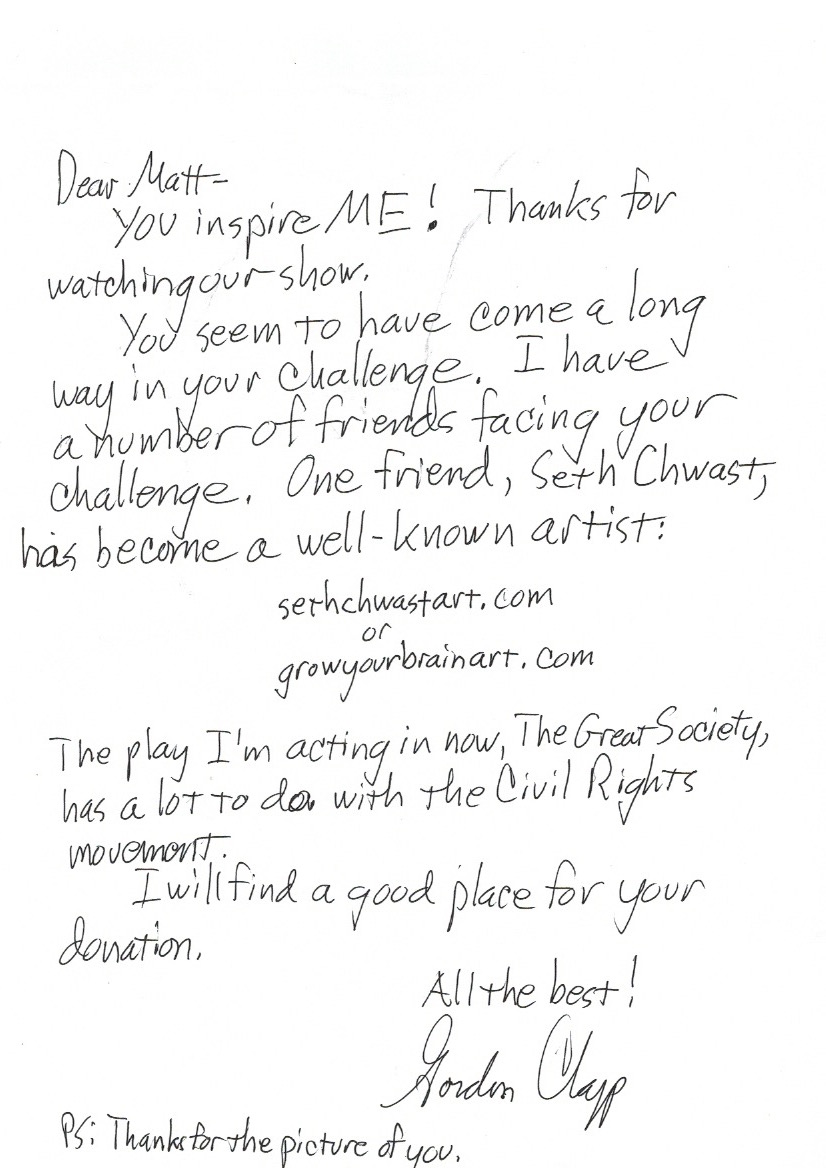 Dear Matt-
You inspire ME! Thanks for
watching our show.
You seem to have come a long
way in your challenge. I have
a number of friends facing your
challenge. One friend, Seth Chwast,
has become a well-known artist:
sethchwastart.com
or
growyourbrainart.com
The play I'm acting in now, The Great Society,
has a lot to do with the Civil Rights
movement.
I will find a good place for your
donation.
All the best!
Gordon Clapp
PS: Thanks for the picture of you.